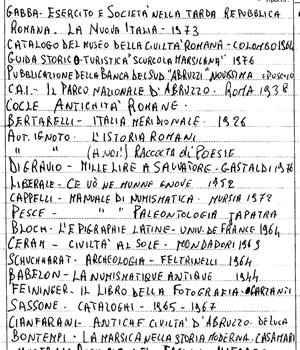 GABBA - ESERCITO E SOCIETÀ NELLA TARDA REPUBBLICA
ROMANA. LA NUOVA ITALIA - 1973
CATALOGO DEL MUSEO DELLA CIVILTÀ ROMANA - COLOMBO 1964
GUIDA STORICO-TURISTICA "SCURCOLA MARSICANA" 1976
PUBBLICAZIONE DELLA BANCA DEL SUD. "ABRUZZI" NOVISSIMA
C.A.I. - IL PARCO NAZIONALE D'ABRUZZO. ROMA 1938
COCLE ANTICHITÀ ROMANE.
BERTARELLI - ITALIA MERIDIONALE. 1926
AUT. IGNOTO. L'ISTORIA ROMANI
" " (A VOI!) RACCOLTA di POESIE
DIGRAVIO - MILLE LIRE A SALVATORE. GASTALDI 1976
LIBERALE - CE VÒ NE MUNNE GNOVE. 1952
CAPPELLI - MANUALE DI NUMISMATICA. MURSIA 1972
PESCE - " " PALEONTOLOGIA
BLOCH. L'EPIGRAPHIE LATINE - UNIV. DE FRANCE 1964
CERAM - CIVILTÀ AL SOLE - MONDADORI 1969
SCHUCHHARDT - ARCHEOLOGIA - FELTRINELLI 1964
BABELON - LA NUMISMATIQUE ANTIQUE 1944
FEININGER. IL LIBRO DELLA FOTOGRAFIA. GARZANTI
SASSONE. CATALOGHI - 1965 - 1967
CIANFARANI - ANTICHE CIVILTÀ D'ABRUZZO. DE LUCA
BONTEMPI - LA MARSICA NELLA STORIA MODERNA. CASAMARI